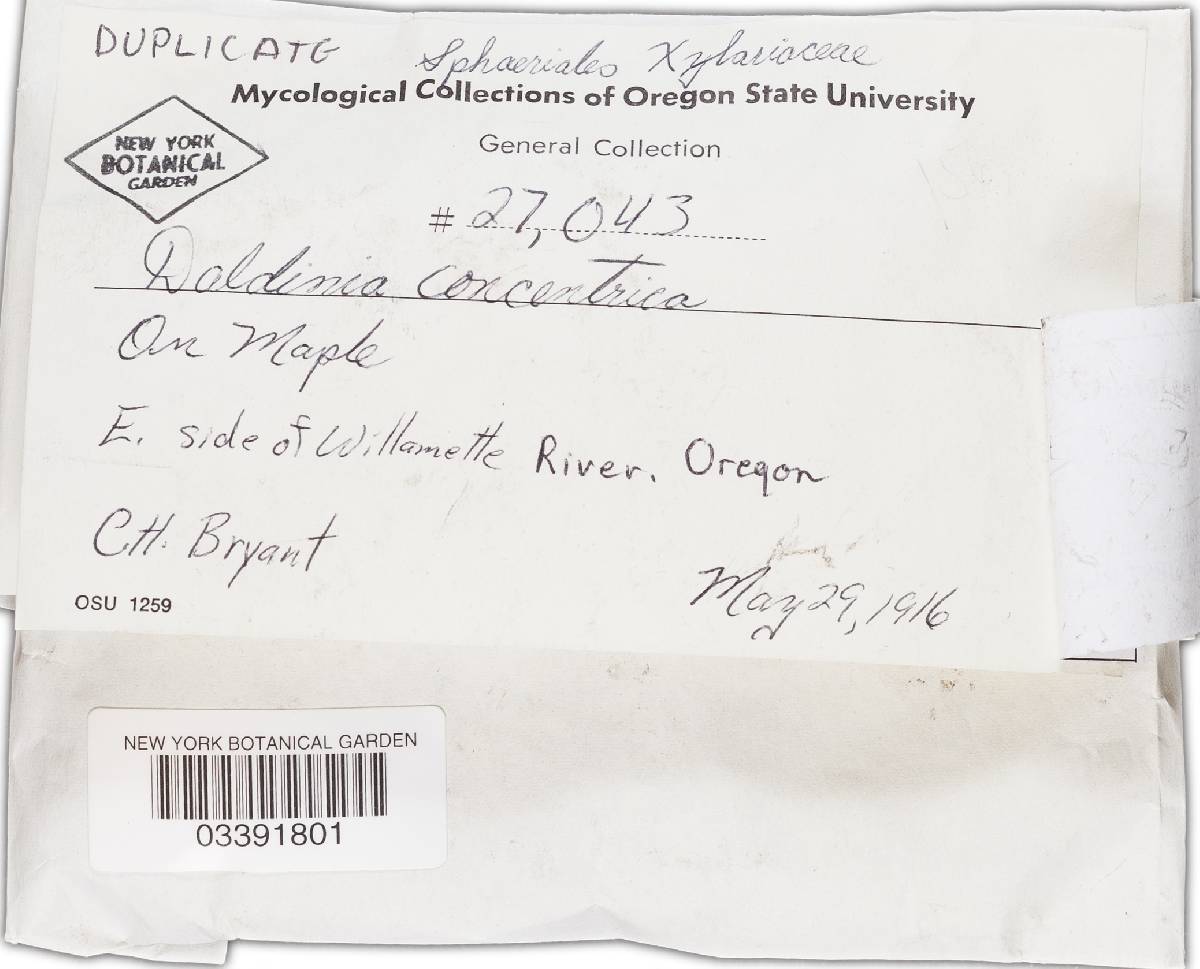 DUPLICATE
Sphaeriales Xylariaceae
Mycological Collections of Oregon State University
NEW YORK
BOTANICAL
GARDEN
General Collection
# 27,043
Daldinia concentrica
On Maple
E. side of Willamette River, Oregon
C.H. Bryant
May 29, 1916
OSU 1259
NEW YORK BOTANICAL GARDEN
03391801